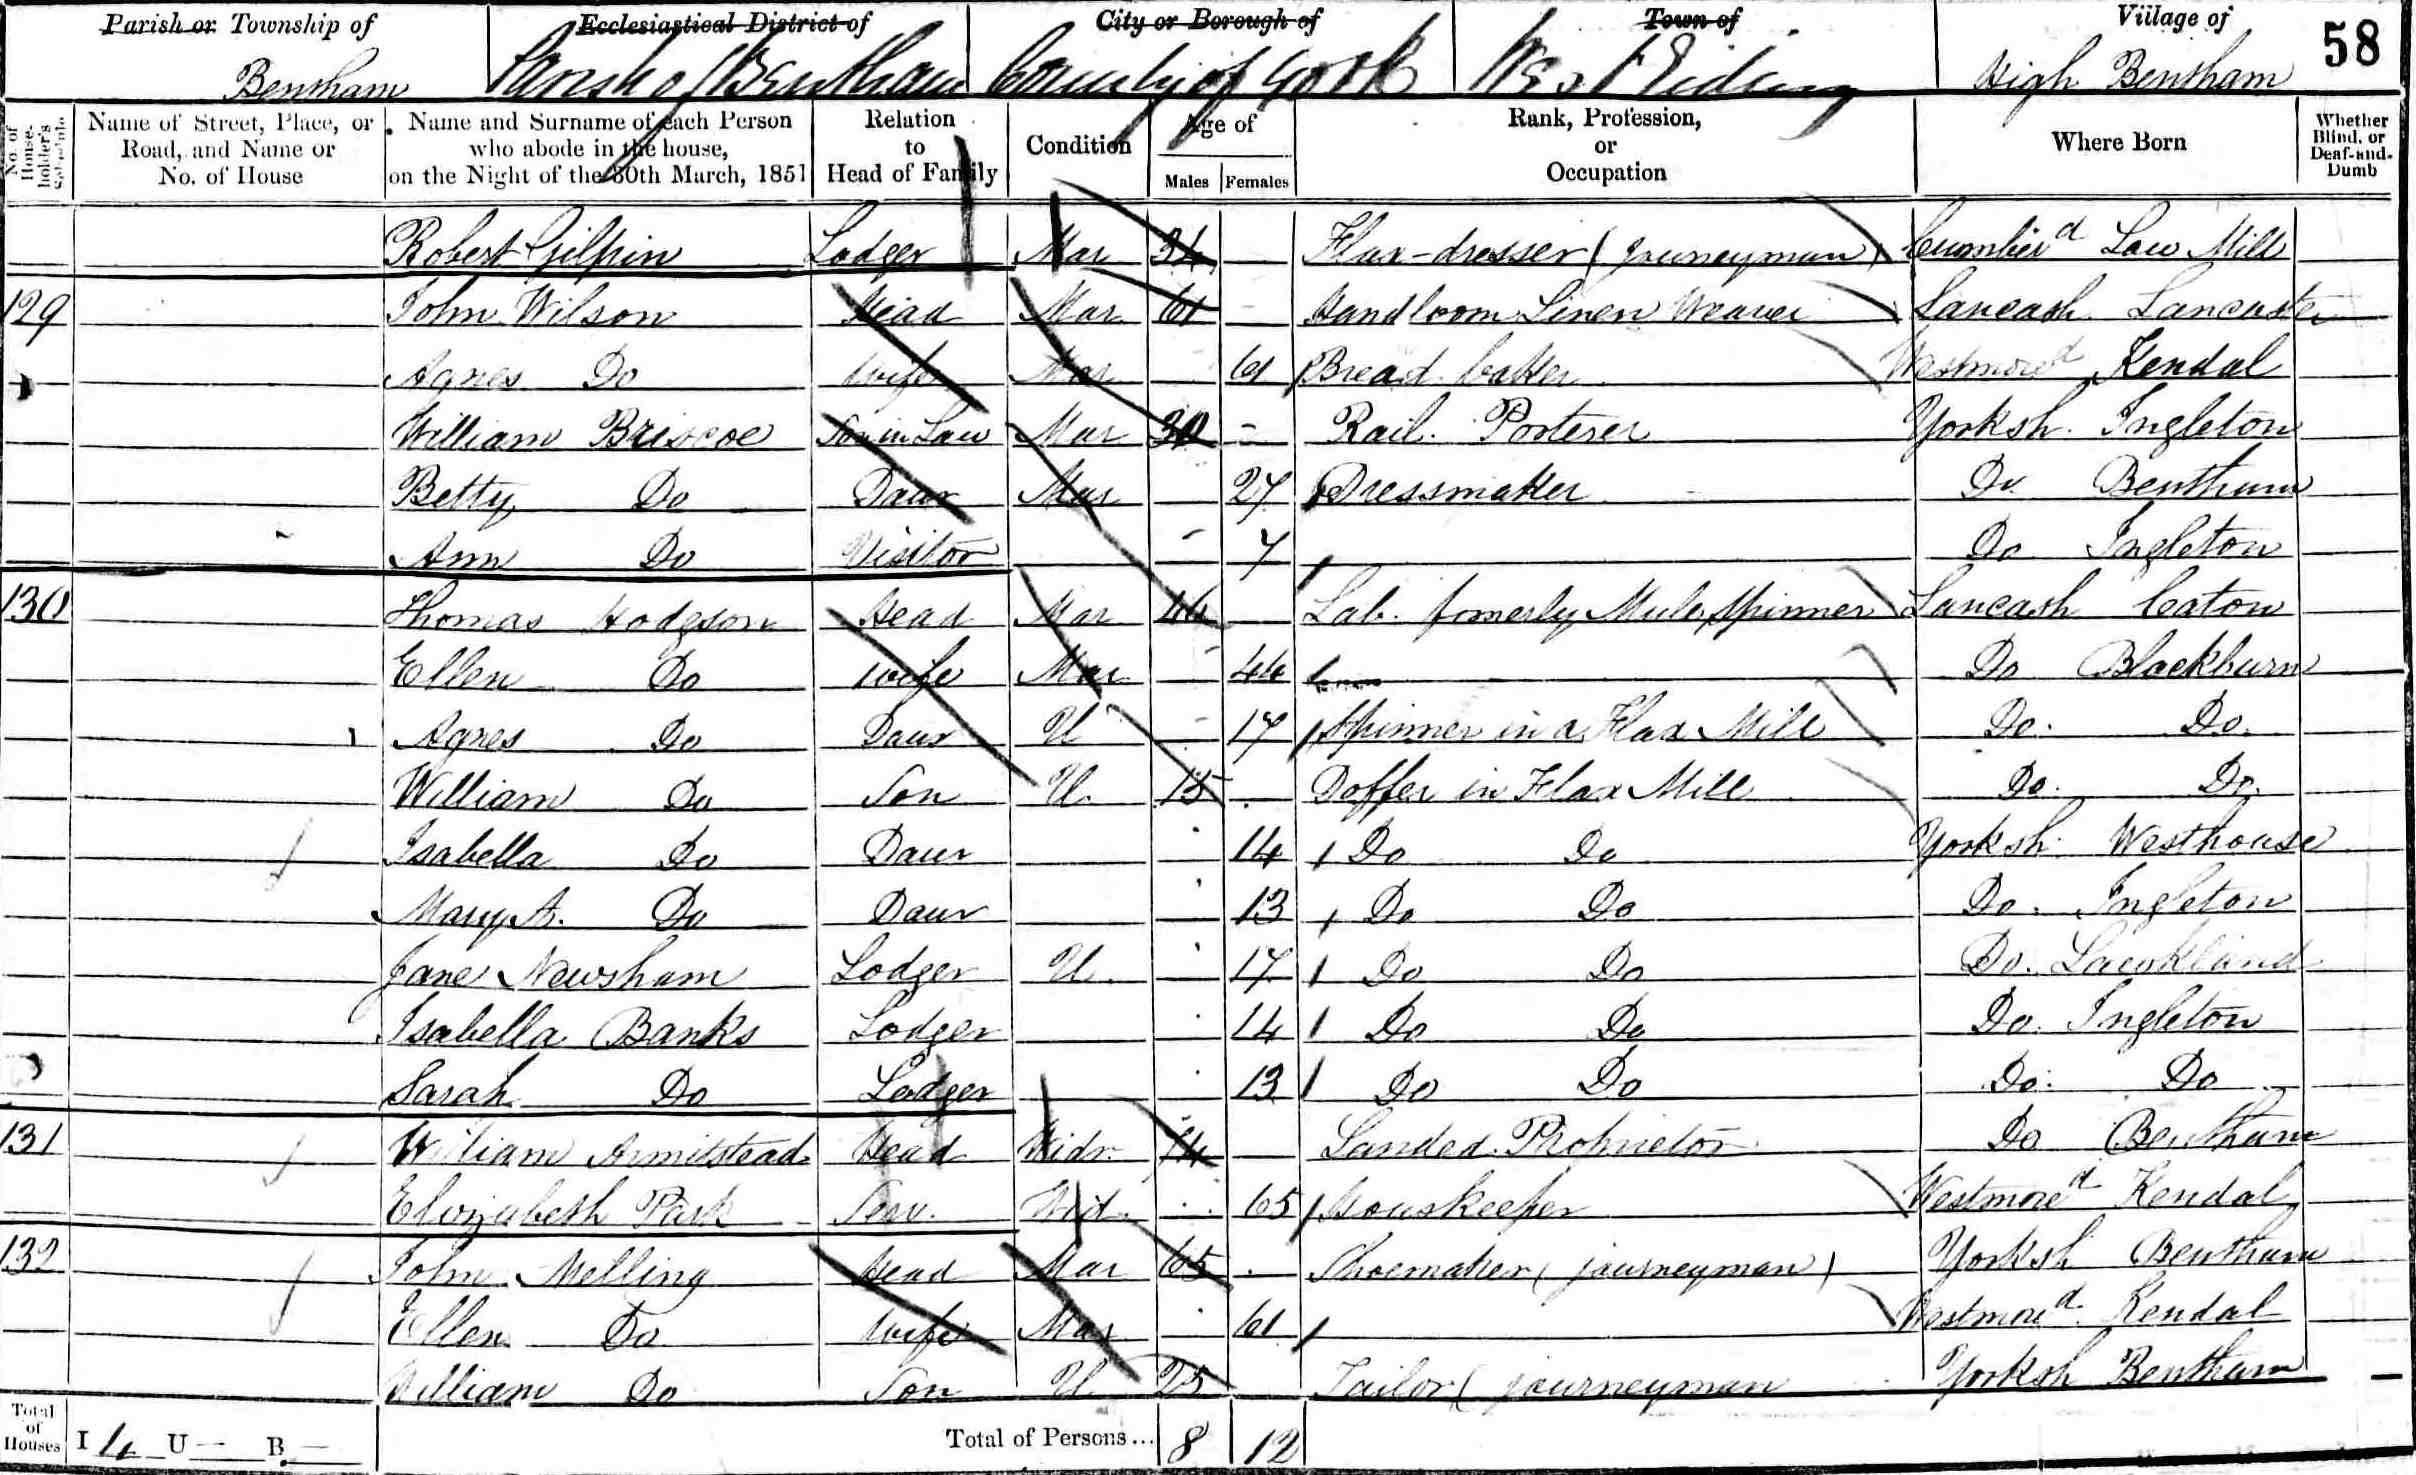 Parish or Township of Ecclesiastical District of City or Borough of Town of Village of 58
Bentham Parish of Bentham County of York West Riding High Bentham
No. of House-holder's Schedule Name of Street, Place, or Road, and Name or No. of House Name and Surname of each Person who abode in the house, on the Night of the 30th March, 1851 Relation to Head of Family Condition Age of Males Females Rank, Profession, or Occupation Where Born Whether Blind, or Deaf-and-Dumb
Robert Gilpin Lodger Mar 34 Flax-dresser (journeyman) Cumberd Low Mill
129 John Wilson Head Mar 61 Handloom Linen Weaver Lancash Lancaster
Agnes Do Wife Mar 61 Bread baker Westmored Kendal
William Briscoe Son in Law Mar 30 Rail. Porterer Yorksh. Ingleton
Betty Do Daur Mar 27 Dressmaker Do Bentham
Ann Do Visitor 7 Do Ingleton
130 Thomas Hodgson Head Mar 44 Lab. fomerly Mule Spinner Lancash Caton
Ellen Do Wife Mar 44 Do Blackburn
Agnes Do Daur U 17 Spinner in a Flax Mill Do. Do.
William Do Son U. 15 Doffer in Flax Mill Do. Do.
Isabella Do Daur 14 Do Do Yorksh. Westhouse
Mary A. Do Daur 13 Do Do Do. Ingleton
Jane Newsham Lodger U. 17 Do Do Do.
Isabella Banks Lodger 14 Do Do Do. Ingleton
Sarah Do Lodger 13 Do Do Do. Do
131 William Armitstead Head Widr. 74 Landed Proprietor Do Bentham
Elizabeth Park Serv. Wid. 65 Houskeeper Westmored Kendal
132 John Melling Head Mar 65 Shoemaker (journeyman) Yorksh Bentham
Ellen Do Wife Mar 61 Westmored. Kendal
William Do Son U 25 Tailor (journeyman Yorksh Bentham
Total of Houses I 4 U — B — Total of Persons... 8 12